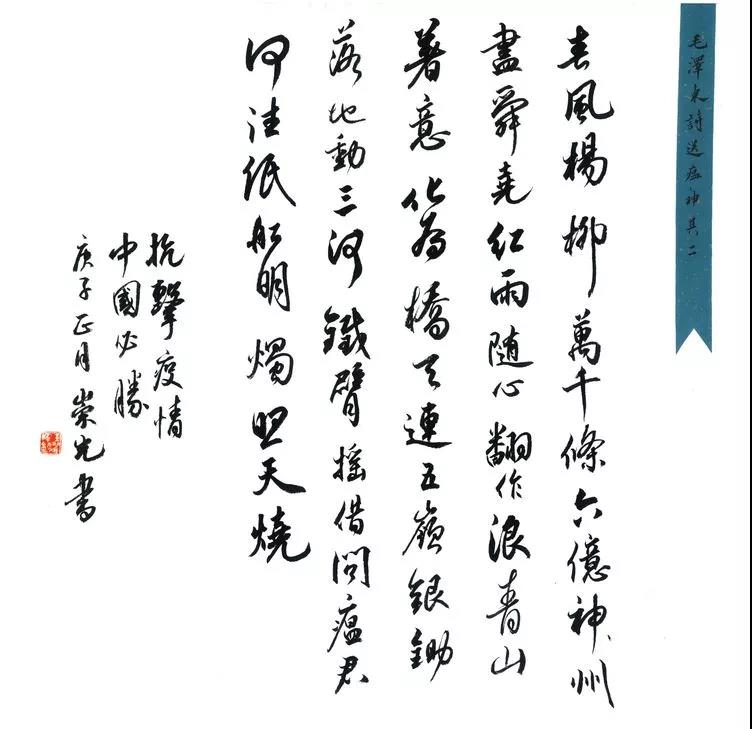 毛澤東詩送瘟神其二
春風楊柳萬千條六億神州
盡舜堯紅雨隨心翻作浪青山
著意化為橋天連五嶺銀鋤
落地動三河鐵臂搖借問瘟君
何往紙船明燭照天燒
抗擊疫情
中國必勝
庚子正月崇光書